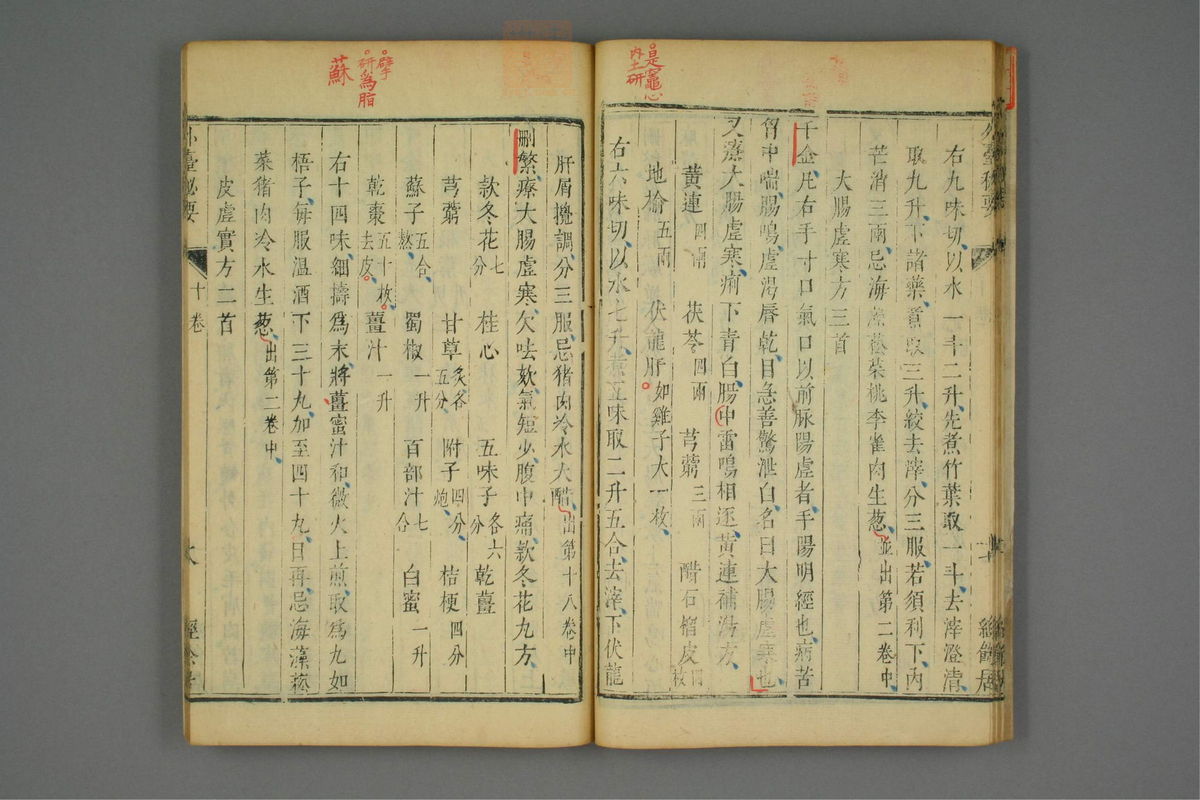 是竈心
内土研
右九味切以水一斗二升先煮竹葉取一斗去滓澄清
取九升下諸藥煮取三升絞去滓分三服若須利下内
芒消三兩忌海藻菘菜桃李雀肉生葱並出第二卷中
大腸虛寒方三首
千金凡右手寸口氣口以前脉陽虛者手陽明經也病苦
胷中喘腸鳴虛渴唇乾目急善驚泄白名曰大腸虛寒也
又療大腸虛寒痢下青白腸中雷鳴相逐黃連補湯方
黃連四兩 茯苓四兩 芎藭三兩 醋石榴皮四枚
地榆五兩 伏龍肝如雞子大一枚
右六味切以水七升煮五味取二升五合去滓下伏龍
研爲脂
蘇
肝屑攪調分三服忌猪肉冷水大醋出第十八卷中
刪繁療大腸虛寒欠呿欬氣短少腹中痛款冬花丸方
款冬花七分 桂心 五味子各六分 乾薑
芎藭 甘草炙各五分 附子四分炮 桔梗四分
蘇子五合熬 蜀椒一升 百部汁七合 白蜜一升
乾棗五十枚去皮 薑汁一升
右十四味細擣爲末將薑蜜汁和微火上煎取爲丸如
梧子每服溫酒下三十丸加至四十丸日再忌海藻菘
菜猪肉冷水生葱出第二卷中
皮虛實方二首
外臺秘要 十卷